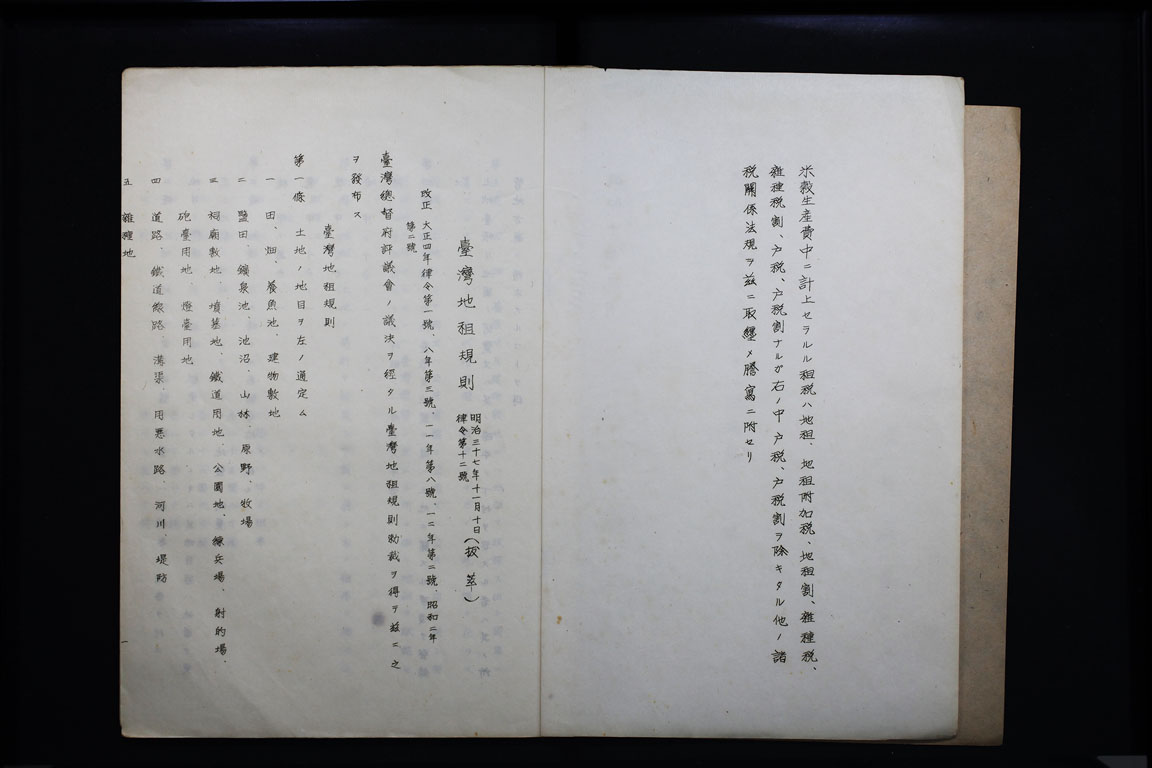 米穀生産費中ニ計上セラルル租税ハ地租、地租附加税、地租割、雜種税、
雜種税割、戸税、戸税割ナルガ右ノ中戸税、戸税割ヲ除キタル他ノ諸
税關係法規ヲ茲ニ取纒メ謄寫ニ附セリ
臺灣地租規則
明治三十七年十一月十日
律令第十二號
(拔萃)
改正 大正四年律令第一號、八年第三號、一一年第八號、一二年第二號、昭和二年
第二號
臺灣總督府評議會ノ議決ヲ經タル臺灣地租規則勅裁ヲ得テ茲ニ之
ヲ發布ス
臺灣地租規則
第一條 土地ノ地目ヲ左ノ通定ム
一 田、畑、養魚池、建物敷地
二 鹽田、鑛泉池、池沼、山林、原野、牧場
三 祠廟敷地、墳墓地、鐵道用地、公園地、練兵場、射的場、
砲臺用地、燈臺用地
四 道路、鐵道線路、溝渠、用惡水路、河川、堤防
五 雜種地
一